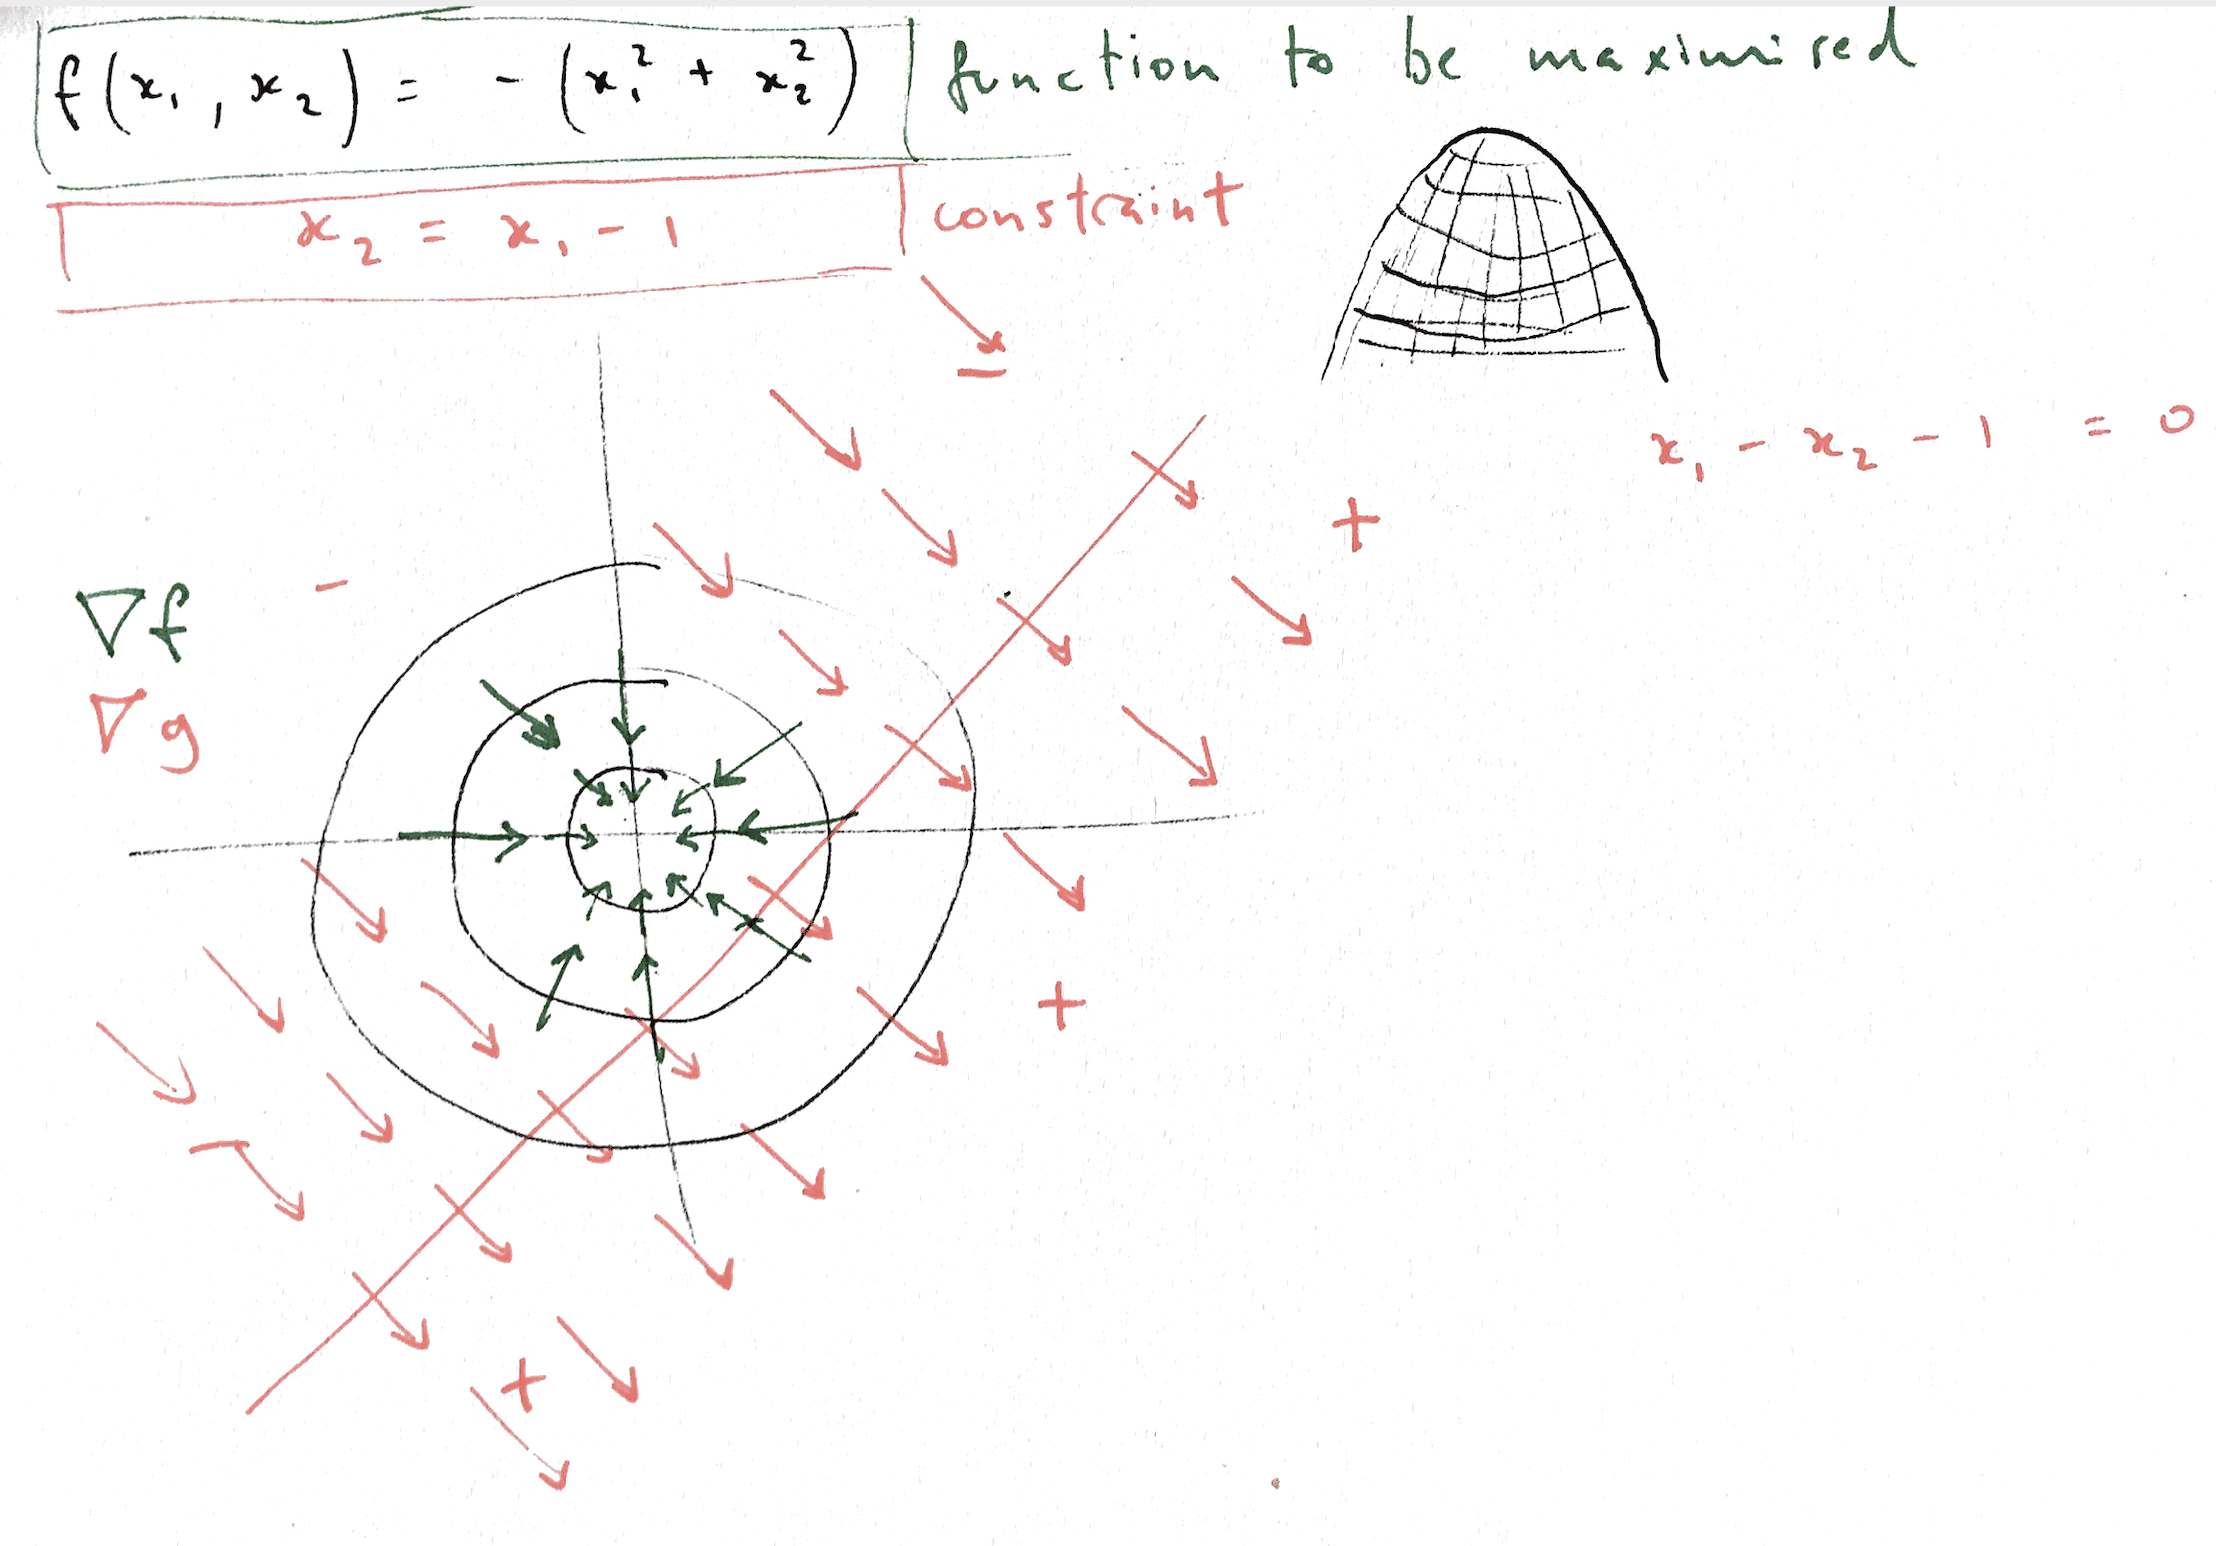 f(x₁, x₂) = -(x₁² + x₂²) function to be maximised
x₂ = x₁ - 1 constraint
x₁ - x₂ - 1 = 0
-
+
∇f
∇g
+
-
+